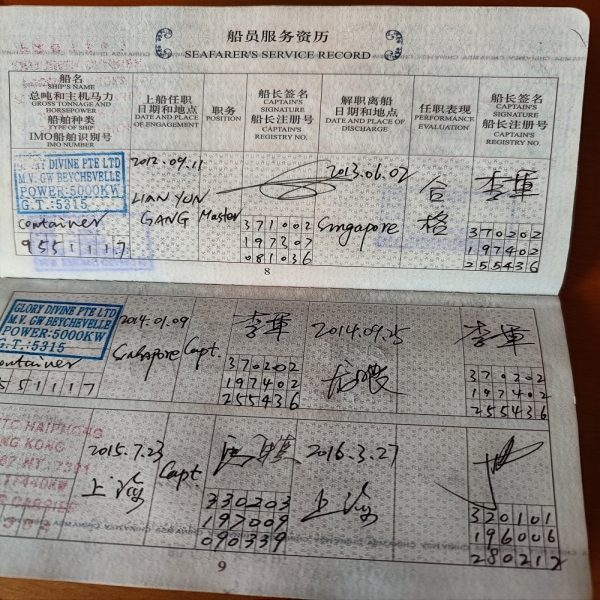 船员服务资历
SEAFARER'S SERVICE RECORD
船名
SHIP'S NAME
总吨和主机马力
GROSS TONNAGE AND
HORSEPOWER
船舶种类
TYPE OF SHIP
IMO船舶识别号
IMO NUMBER
上船任职
日期和地点
DATE AND PLACE
OF ENGAGEMENT
职务
POSITION
船长签名
CAPTAIN'S
SIGNATURE
船长注册号
CAPTAIN'S
REGISTRY NO.
解职离船
日期和地点
DATE AND PLACE OF
DISCHARGE
任职表现
PERFORMANCE
EVALUATION
船长签名
CAPTAIN'S
SIGNATURE
船长注册号
CAPTAIN'S
REGISTRY NO.
GLORY DIVINE PTE LTD
M.V. GW BEYCHEVELLE
POWER:5000KW
G.T.:5315
Container
9551117
2012.09.11
LIANYUN
GANG
Master
371002
197307
081036
2013.06.02
Singapore
合
格
李軍
370202
197402
255436
8
GLORY DIVINE PTE LTD
M.V. GW BEYCHEVELLE
POWER:5000KW
G.T.:5315
ontainer
551117
2014.01.09
Singapore
Capt.
李軍
370202
197402
255436
2014.09.25
李軍
370202
197402
255436
TC HAIPHONG
NG KONG
2015.7.23
上海
Capt.
330203
197009
090339
2016.3.27
上海
320101
196006
280212
9